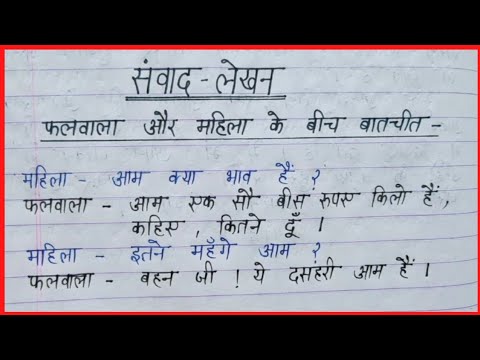 संवाद - लेखन
फलवाला और महिला के बीच बातचीत -
महिला - आम क्या भाव हैं ?
फलवाला - आम एक सौ बीस रुपए किलो हैं ,
कहिए , कितने दूँ ।
महिला - इतने महँगे आम ?
फलवाला - बहन जी ! ये दसहरी आम हैं ।